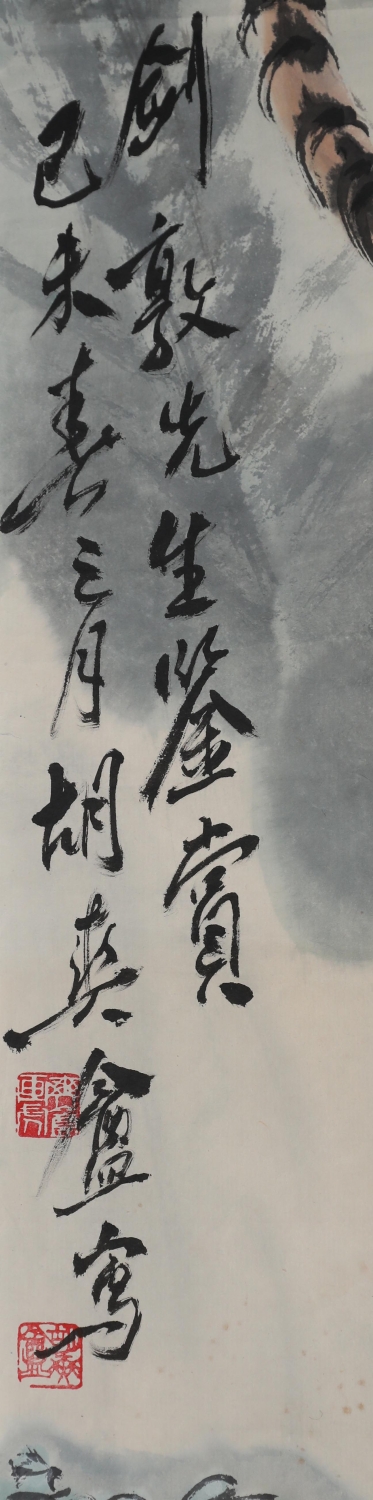 劍敦先生鑒賞
己未春三月胡爽盦寫